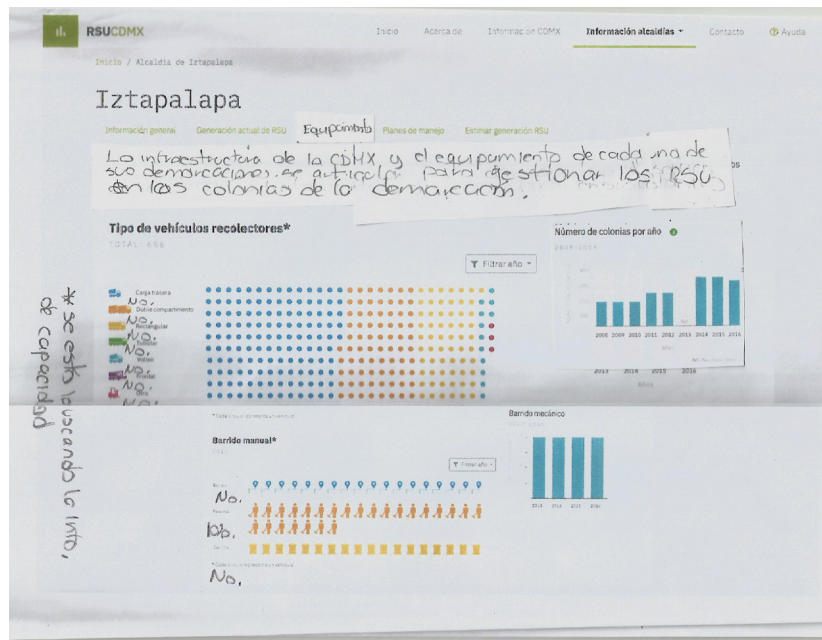 RSUCDMX
Inicio
Acerca de
Informac de CDMX
Información alcaldías
Contacto
Ayuda
Inicio / Alcaldía de Iztapalapa
Iztapalapa
Información general
Generación actual de RSU
Equipamiento
Planes de manejo
Estimar generación RSU
La infraestructura de la CDMX, y el equipamiento de cada una de
sus demarcaciones, se articula para gestionar los RSU
en las colonias de la demarcación.
os
Tipo de vehículos recolectores*
TOTAL: 656
Filtrar año
Carga trasera
No.
Doble compartimento
No.
Rectangular
No.
No.
Volteo
No.
Frontal
No.
Otro
No.
Número de colonias por año
2008 2009 2010 2011 2012 2013 2014 2015 2016
Años
2013 2014 2015 2016
Años
* se está buscando la info,
de capacidad
Barrido manual*
Filtrar año
No.
10b.
No.
Barrido mecánico
2013 2014 2015 2016